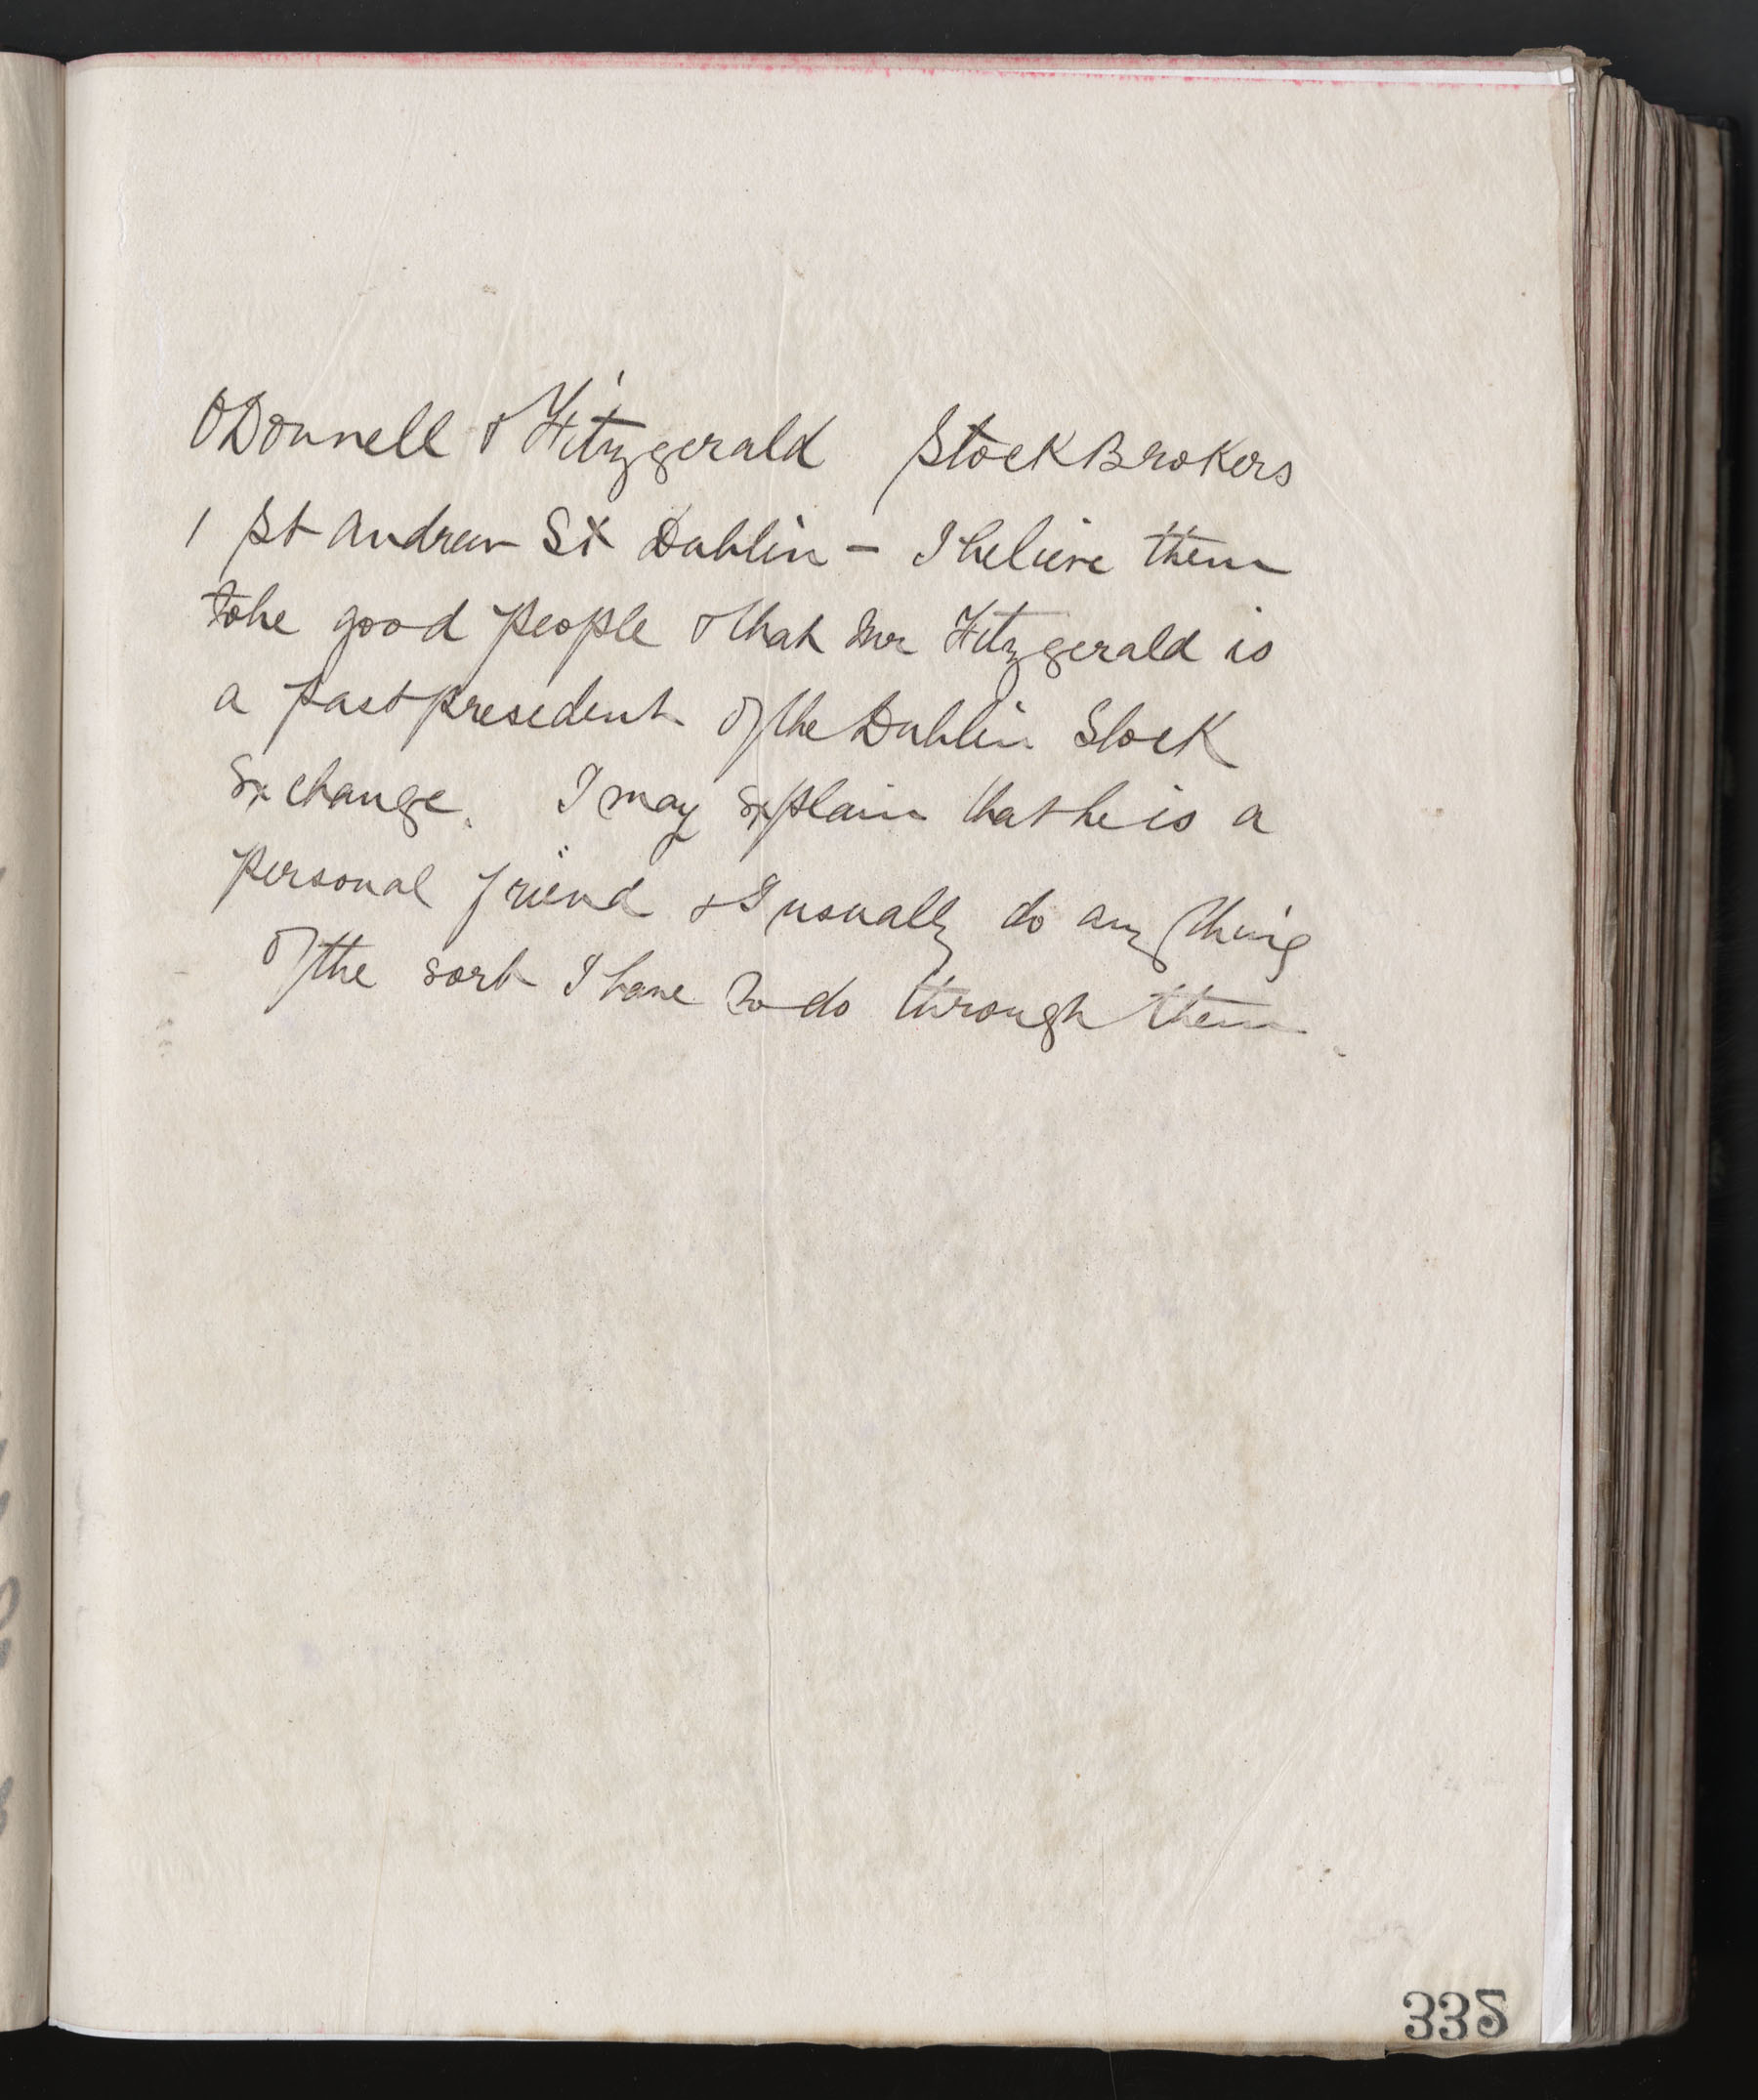 ODonnell & Fitzgerald Stock Brokers
1 St Andrew St Dublin - I believe them
to be good people & that Mr Fitzgerald is
a past president of the Dublin Stock
Exchange. I may explain that he is a
personal friend & I usually do any thing
of the sort I have to do through them.
335